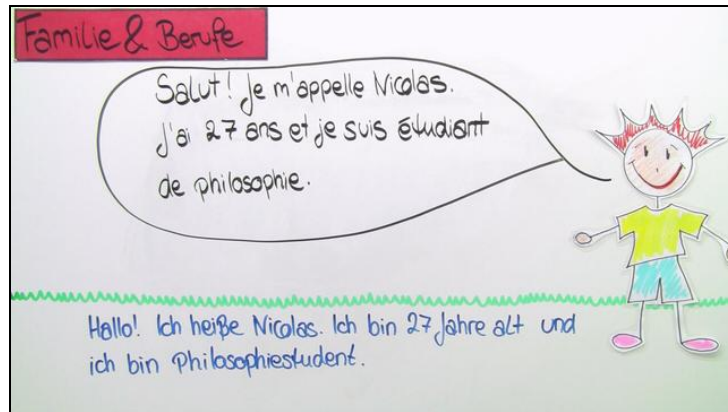 Familie & Berufe
Salut! Je m'appelle Nicolas.
J'ai 27 ans et je suis étudiant
de philosophie.
Hallo! Ich heiße Nicolas. Ich bin 27 Jahre alt und
ich bin Philosophiestudent.